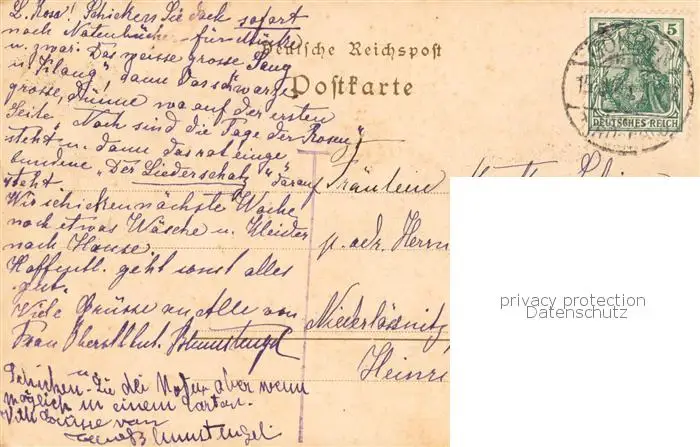 L. Rosa! Schicken Sie doch sofort
noch Notenbücher für Musik
u. zwar: Das weisse grosse "Sang
u. Klang" dann das schwarze
grosse, dünne wo auf der ersten
Seite "Noch sind die Tage der Rosen"
steht u. dann das rot einge
bundene "Der Liederschatz" darauf
steht.
Wir schicken nächste Woche
noch etwas Wäsche u. Kleider
nach Hause.
Hoffentl. geht sonst alles
gut.
Viele Grüsse an Alle von
Frau Oberstlbut.
Schicken Sie die Noten aber wenn
möglich in einem Carton.
Viele Grüsse von
Deutsche Reichspost
Postkarte
5 5
DEUTSCHES REICH
Fräulein
p. adr. Herrn
Niederlössnitz
Heinri
privacy protection
Datenschutz